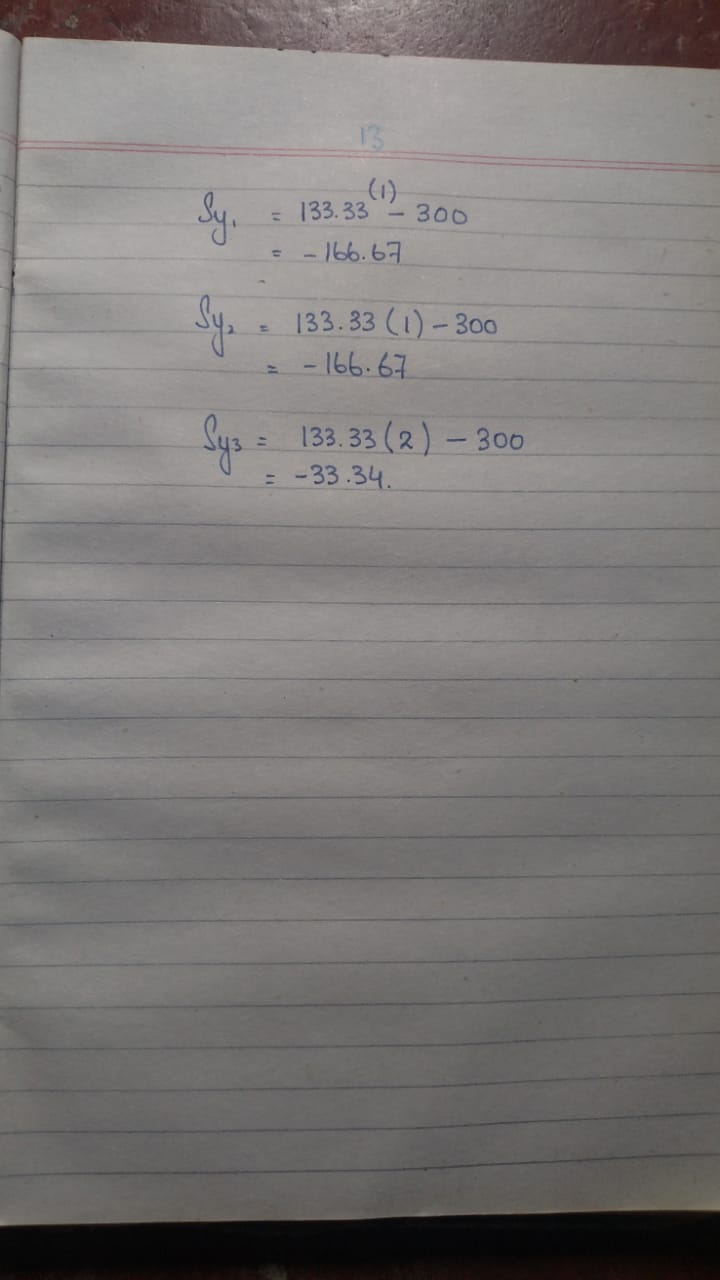 13
Sy₁ = 133.33(1) - 300
= - 166.67
Sy₂ = 133.33 (1) - 300
= - 166.67
Sy₃ = 133.33 (2) - 300
= -33.34.